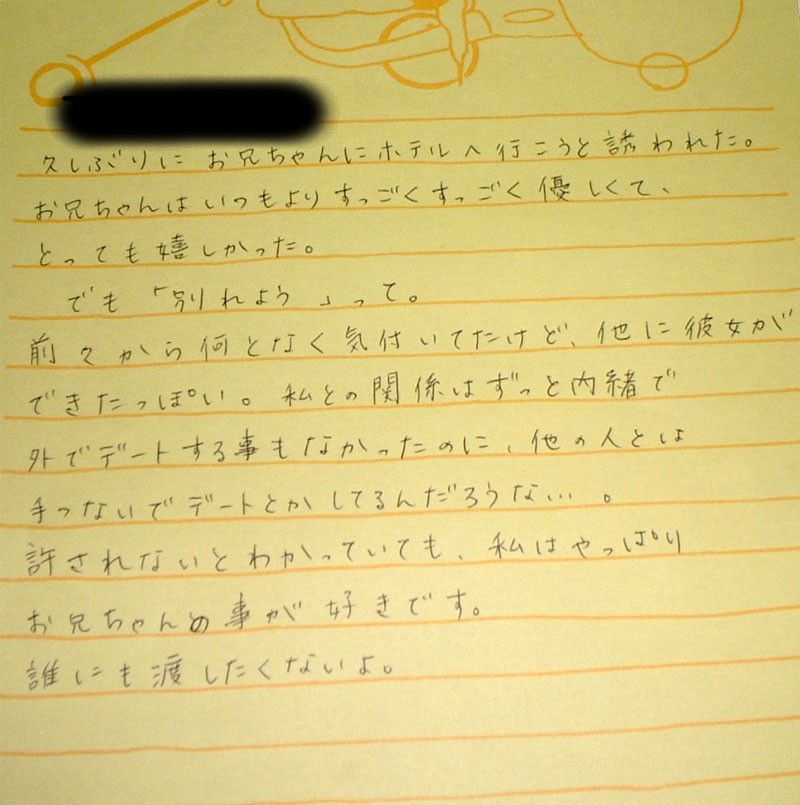 久しぶりにお兄ちゃんにホテルへ行こうと誘われた。
お兄ちゃんはいつもよりすっごくすっごく優しくて、
とっても嬉しかった。
でも「別れよう」って。
前々から何となく気付いてたけど、他に彼女が
できたっぽい。私との関係はずっと内緒で
外でデートする事もなかったのに、他の人とは
手つないでデートとかしてるんだろうな…。
許されないとわかっていても、私はやっぱり
お兄ちゃんの事が好きです。
誰にも渡したくないよ。